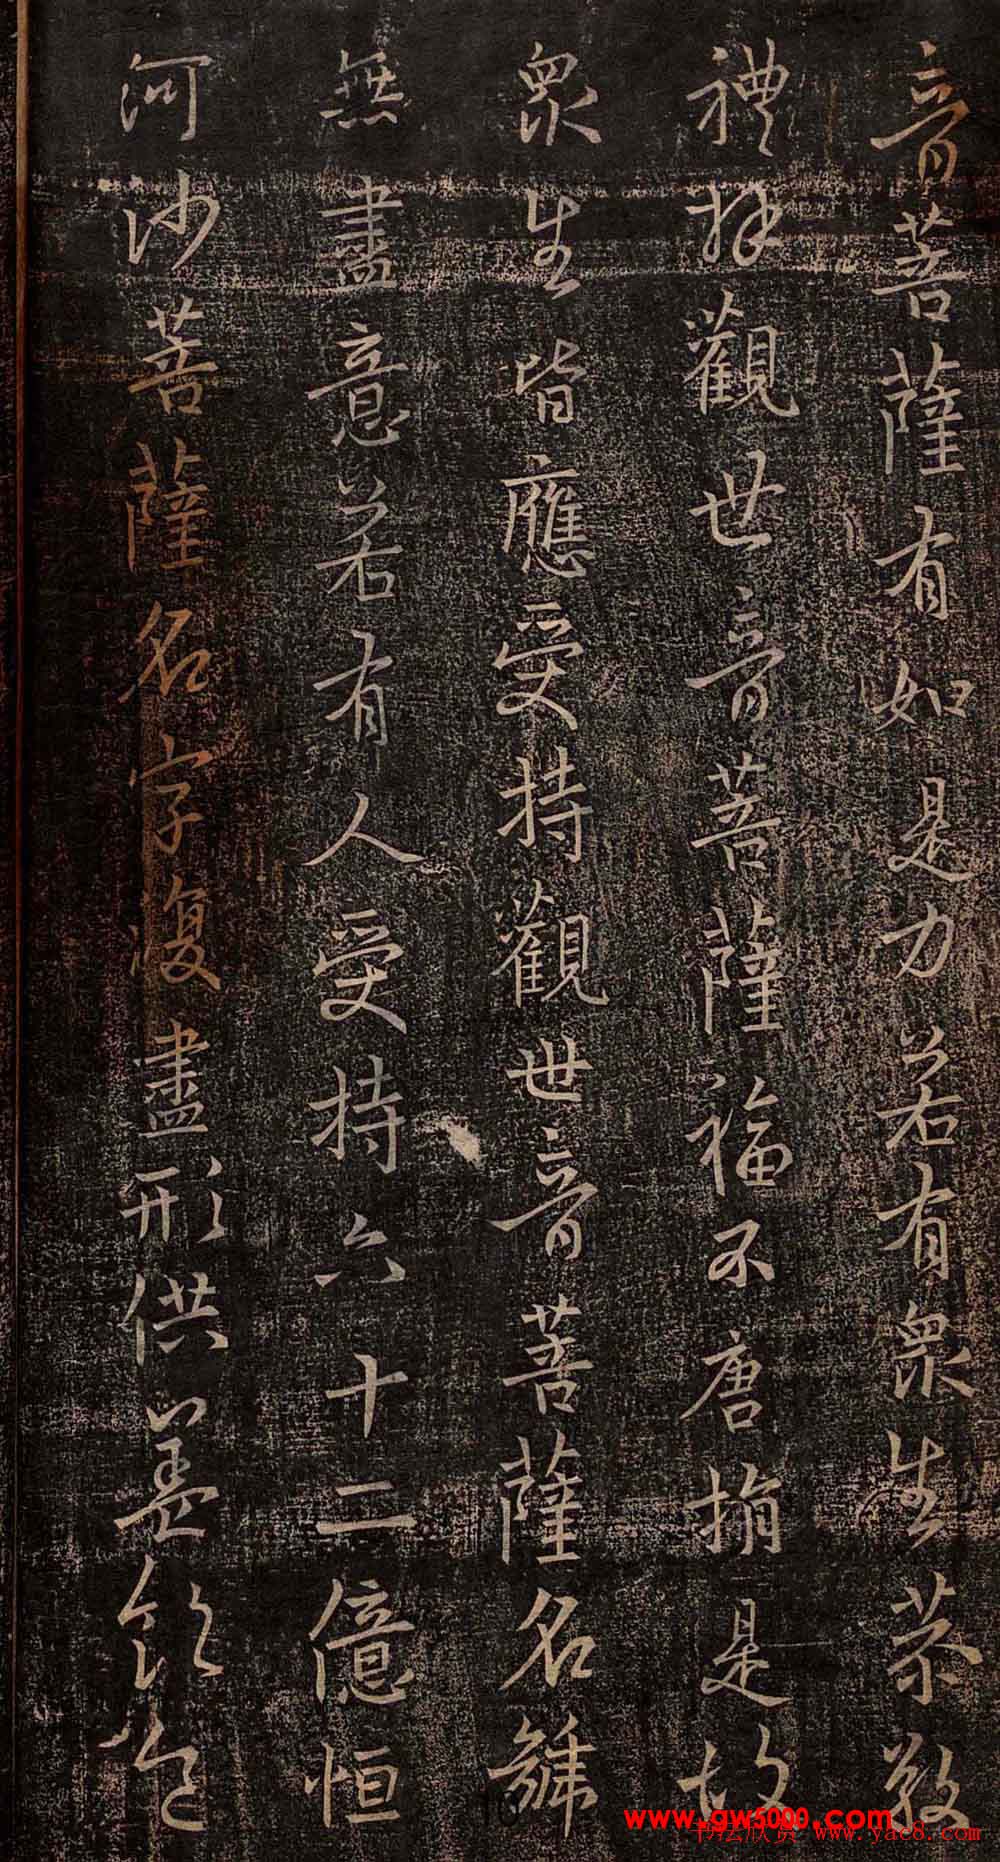 音菩薩有如是力若有眾生恭敬
禮拜觀世音菩薩福不唐捐是故
眾生皆應受持觀世音菩薩名號
無盡意若有人受持六十二億恒
河沙菩薩名字復盡形供養飲食
www.gw5000.com
书法欣赏 www.yac8.com